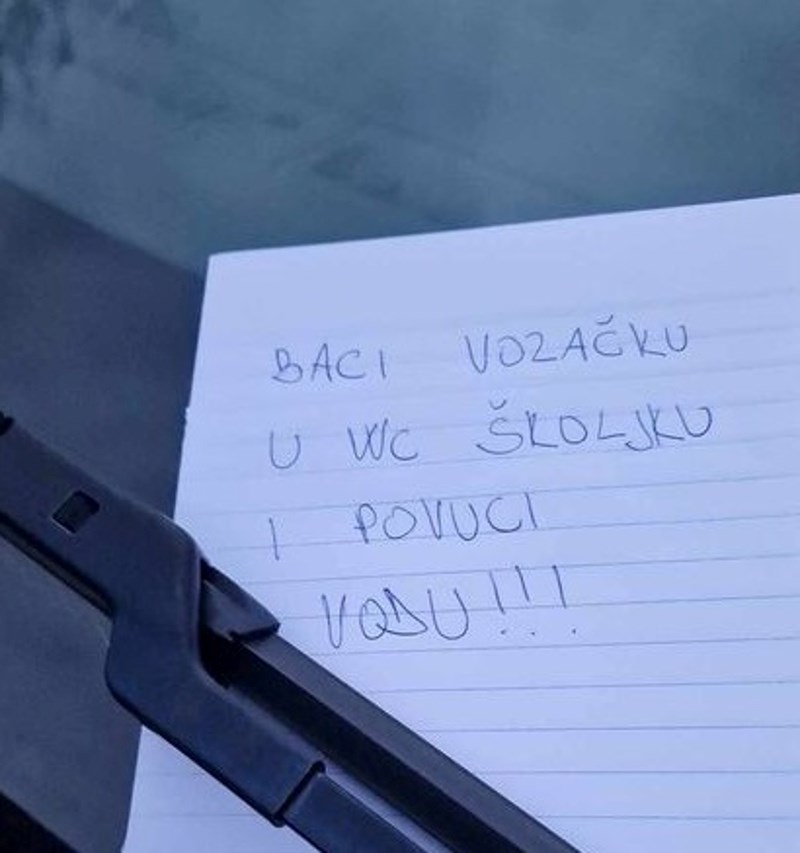 BACI VOZAČKU
U WC ŠKOLJKU
I POVUCI
VODU!!!